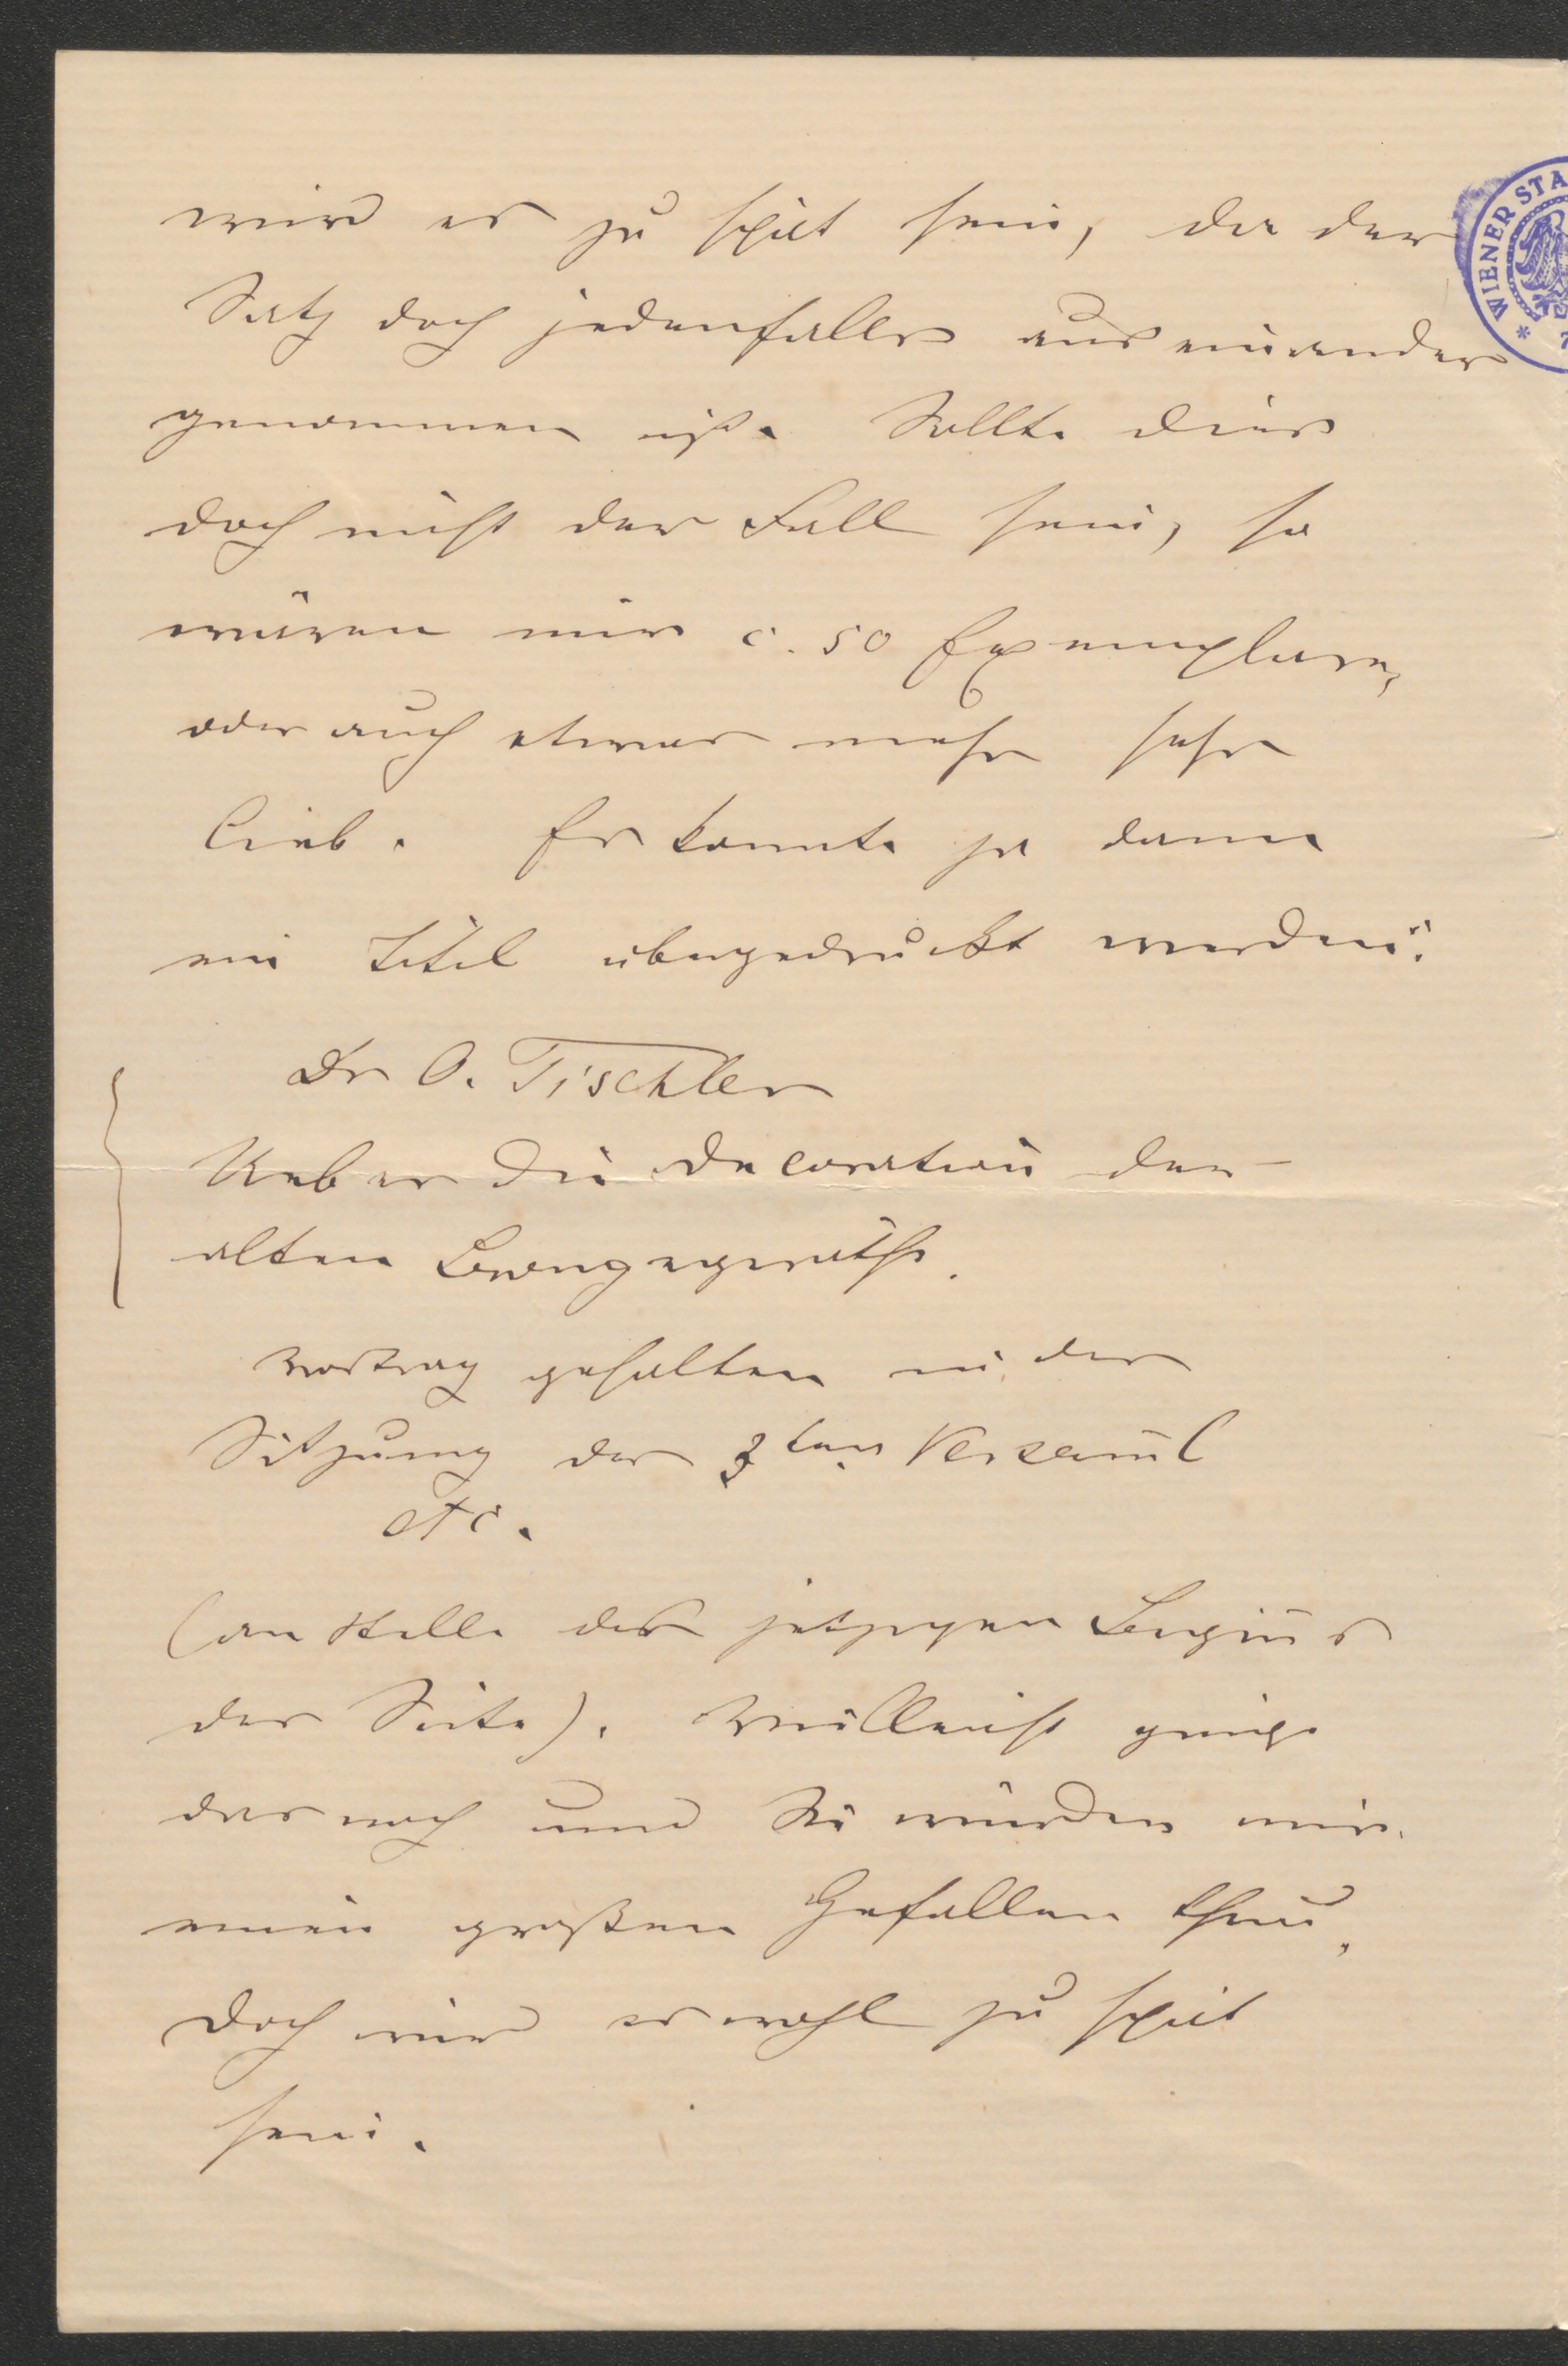 wird es zu spät sein, da der
Satz doch jedenfalls aus einander
genommen ist. Sollte dies
doch nicht der Fall sein, so
wären mir c. 50 Exemplare,
oder auch etwas mehr sehr
lieb. Es konnte ja dann
ein Titel übergedruckt werden:
Dr O. Tischler
Ueber die Decoration der
alten Bronzegeräthe.
Vortrag gehalten in der
Sitzung der 3ten Versaml
etc.
(an Stelle des jetzigen Begins
der Seite). Vielleicht ginge
das noch und Sie würden mir
einen großen Gefallen thun,
doch wird es wohl zu spät
sein.
WIENER STA